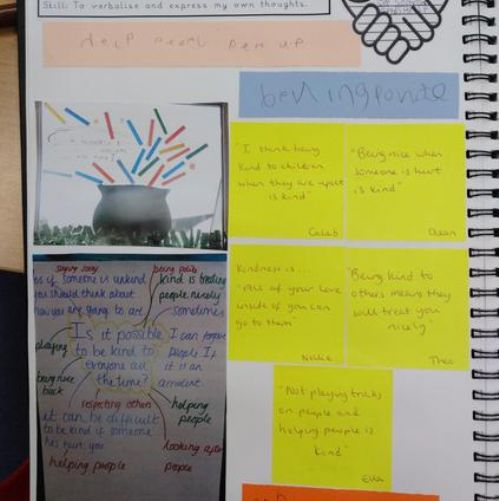 Skill: To verbalise and express my own thoughts.
Help
being polite
"I think being
kind to children
when they are upset
is kind"
Caleb
"Being nice when
someone is hurt
is kind"
Kindness is...
"All of your love
inside of you can
go to them"
"Being kind to
others means they
will treat you
nicely"
Thea
"Not playing tricks
on people and
helping people is
kind"
Ella
saying sorry
being polite
if someone is unkind
you should think about
how you are going to act
kind is treating
people nicely
sometimes
playing
Is it possible
to be kind to
everyone all
the time?
I can forgive
people If
it is an
accident.
being nice
back
respecting others
helping
people
it can be difficult
to be kind if someone
has hurt you
looking after
people
helping people